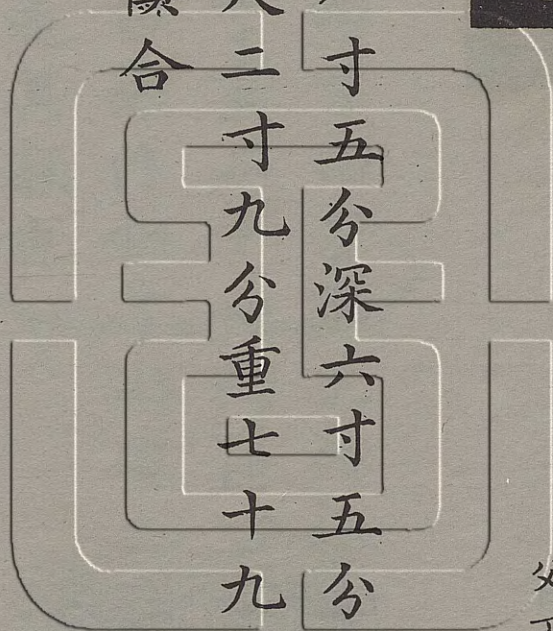 寸五分深六寸五分
二寸九分重七十九
合